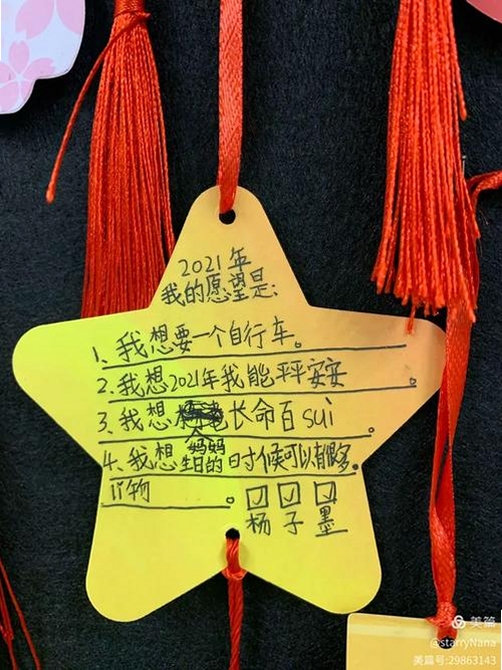 2021年
我的愿望是:
1、我想要一个自行车。
2、我想2021年我能平平安安。
3、我想长命百sui。
妈妈
4、我想生日的时候可以有很多
礼物。
☑ ☑ ☑
杨子墨
美篇
@starryNana
美篇号:29863143